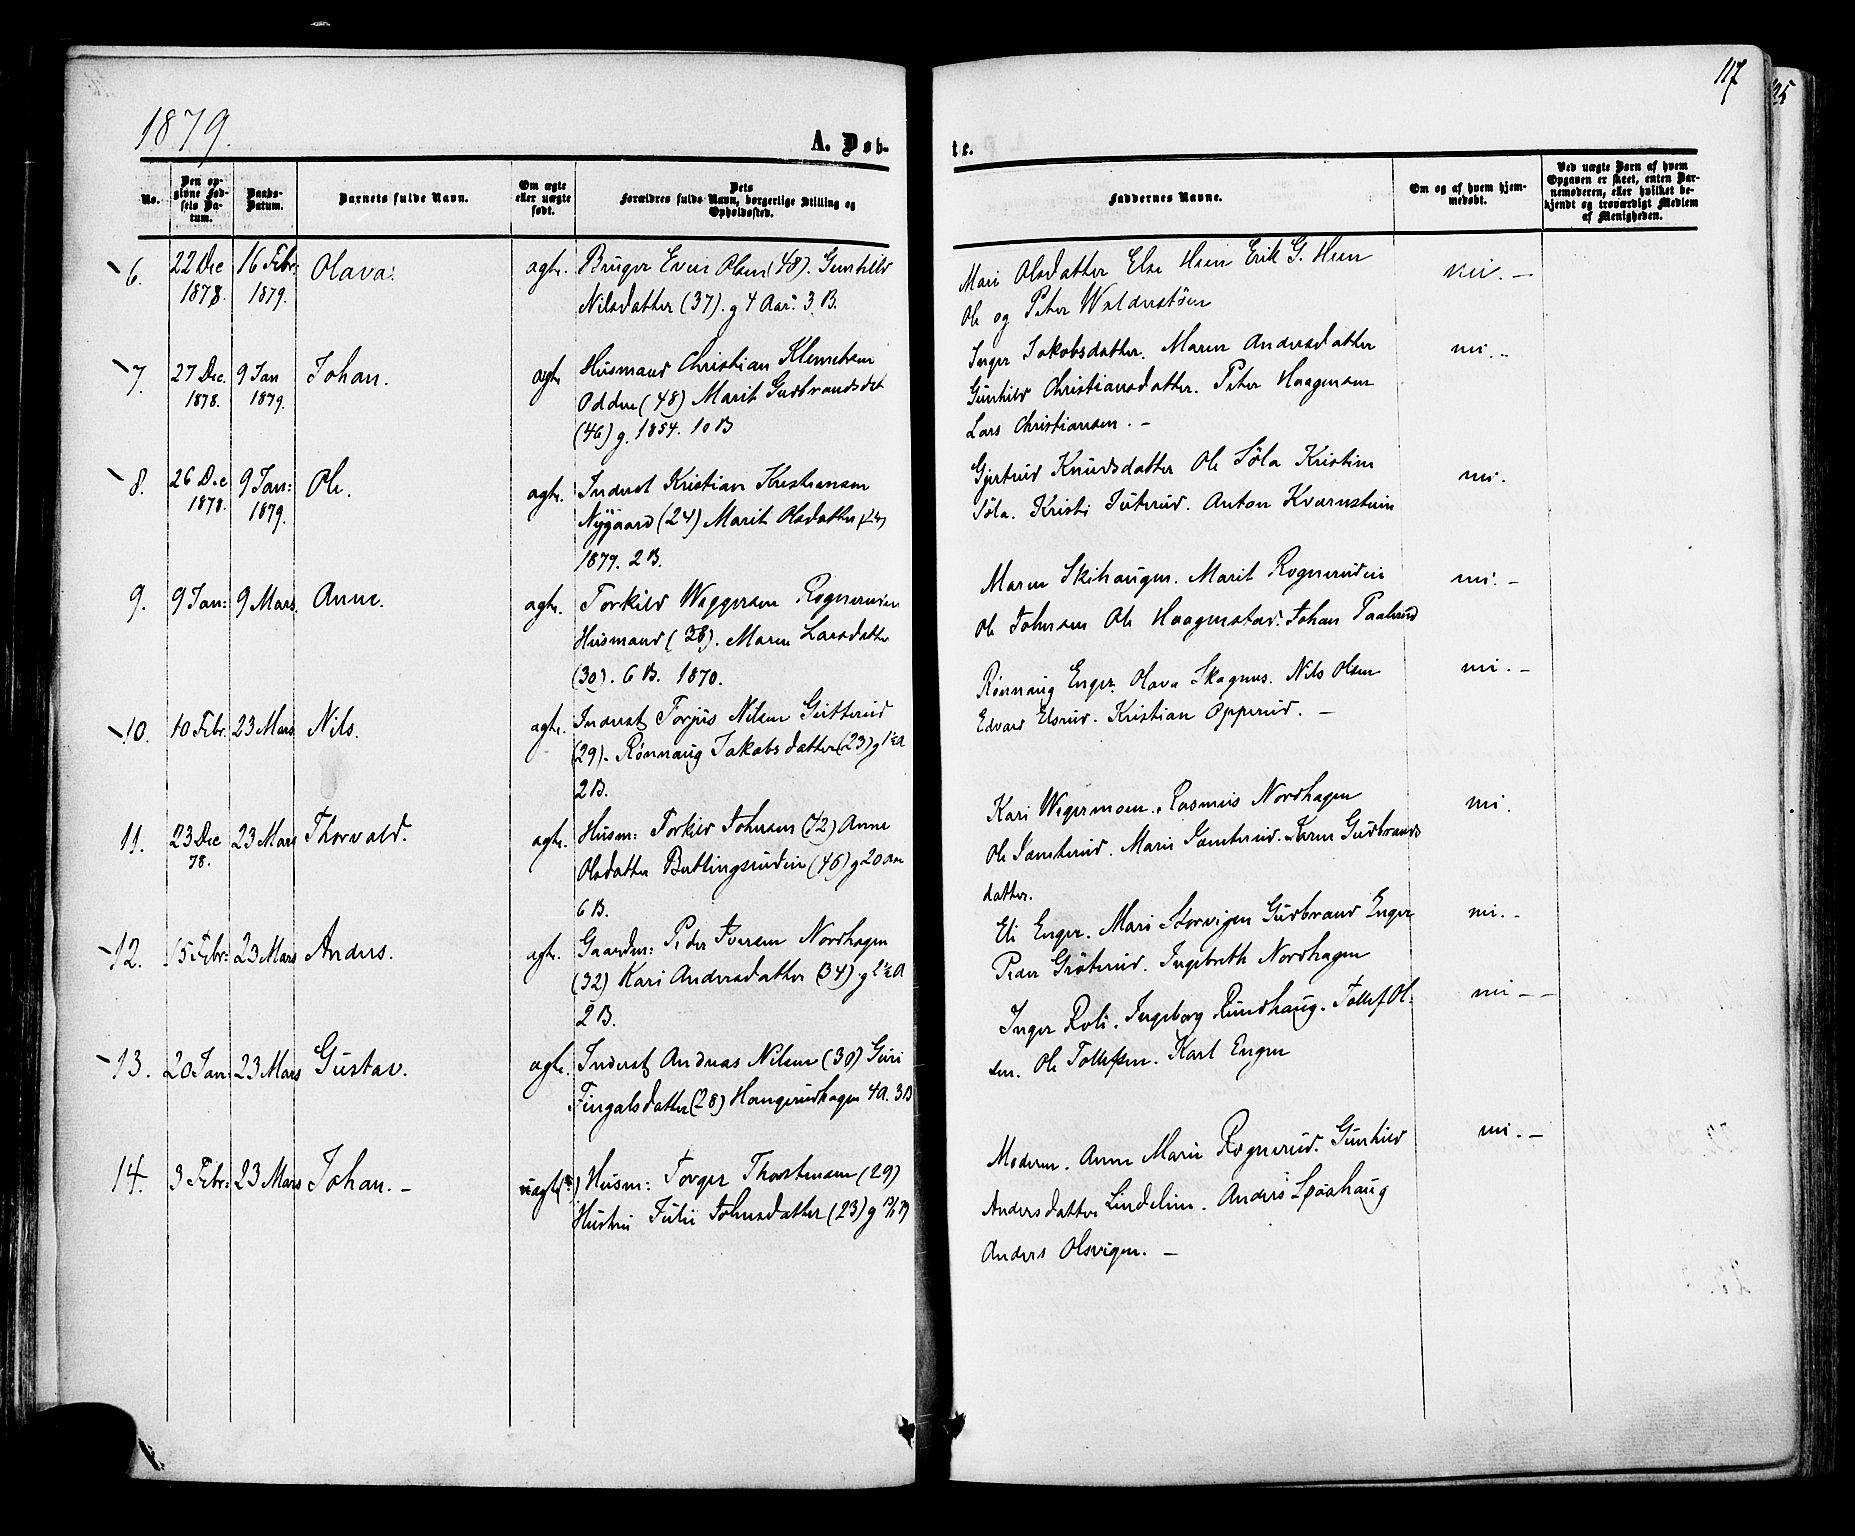 117
1879.
A. Døb-
te.
No.
Den op-
givne Fød-
sels Da-
tum.
Daabs-
Datum.
Barnets fulde Navn.
Om ægte
eller uægte
født.
Dets
Forældres fulde Navn, borgerlige Stilling og
Opholdssted.
Faddernes Navne.
Om og af hvem hjem-
medøbt.
Ved uægte Børn af hvem
Opgaven er skeet, enten Bar-
nemoderen, eller hvilket be-
kjendt og troværdigt Medlem
af Menigheden.
6. 22 Dec 1878. 16 Febr: 1879. Olava. ægte. Bruger Even Olsen (48). Gunhild
Nilsdatter (37). g 4 Aar. 3 B.
Mari Olsdatter Else Hsen Erik G. Hsen
Ole og Peter Walderstøen
nei. –
7. 27 Dec. 1878. 9 Jan 1879. Johan. ægte Husmand Christian Klemetsen
Odden (48) Marit Gudbrandsdet
(46) g. 1854. 10 B
Inger Jakobsdatter. Maren Andersdatter
Gunhild Christiansdatter. Peter Haagensen
Lars Christiansen. –
nei. –
8. 26 Dec 1878. 9 Jan: 1879. Ole. ægte. Inderst Kristian Kristiansen
Nygaard (24) Marit Olsdatter
1879. 2 B.
Gjertrud Knudsdatter Ole Søla Kristine
Søla. Kristi Anton Kvernstuen
nei.
9. 9 Jan: 9 Mars. Anne. ægte. Torkild Weggersen Rognerudeie
Husmand (28). Maren Larsdatter
(30). 6 B. 1870.
Maren Skihaugen. Marit Rognerudeie
Ole Johnsen Ole Haagenstad. Johan Paalerud
nei. –
10. 10 Febr. 23 Mars Nils. ægte. Inderst Torjus Nilsen
(29). Rønnaug Jakobsdatter (23) g 1½ A
2 B.
Rønnaug Enger. Olava Skagnes. Nils Olsen
Edvard Elsrud. Kristian Opperud. –
nei. –
11. 23 Dec 78. 23 Mars Thorvald. ægte. Husm: Torkild Johnsen (42) Anne
Olsdatter Buttingsrudeie (46) g 20 Aar
6 B.
Kari Rasmus Nordhagen
Ole Samterud. Marie Samterud. Karen Gudbrands
datter.
nei.
12. 15 Febr: 23 Mars Anders. ægte. Gaardm: Peder Iversen Nordhagen
(32) Kari Andersdatter (34). g 2½ A
2 B.
Eli Enger. Mari Storvigen Gudbrand Enger
Peder Grøterud. Ingebreth Nordhagen
nei. –
13. 20 Jan: 23 Mars Gustav. ægte. Inderst Andreas Nilsen (30) Guri
Fingalsdatter (28) Haugerudhagen 4 A. 3 B
Inger Roli. Ingeborg Rundhaug. Tollef Ol-
sen. Ole Tollefsen. Karl Enger
nei – –
14. 3 Febr: 23 Mars Johan. – uægte Husm: Torger Thorstensen (29)
Hustru Julie Johnsdatter (23) g
Moderen. Anne Marie Rognerud. Gunhild
Andersdatter Lindelien. Anders Løvhaug
Anders Olsvigen. –
nei. –